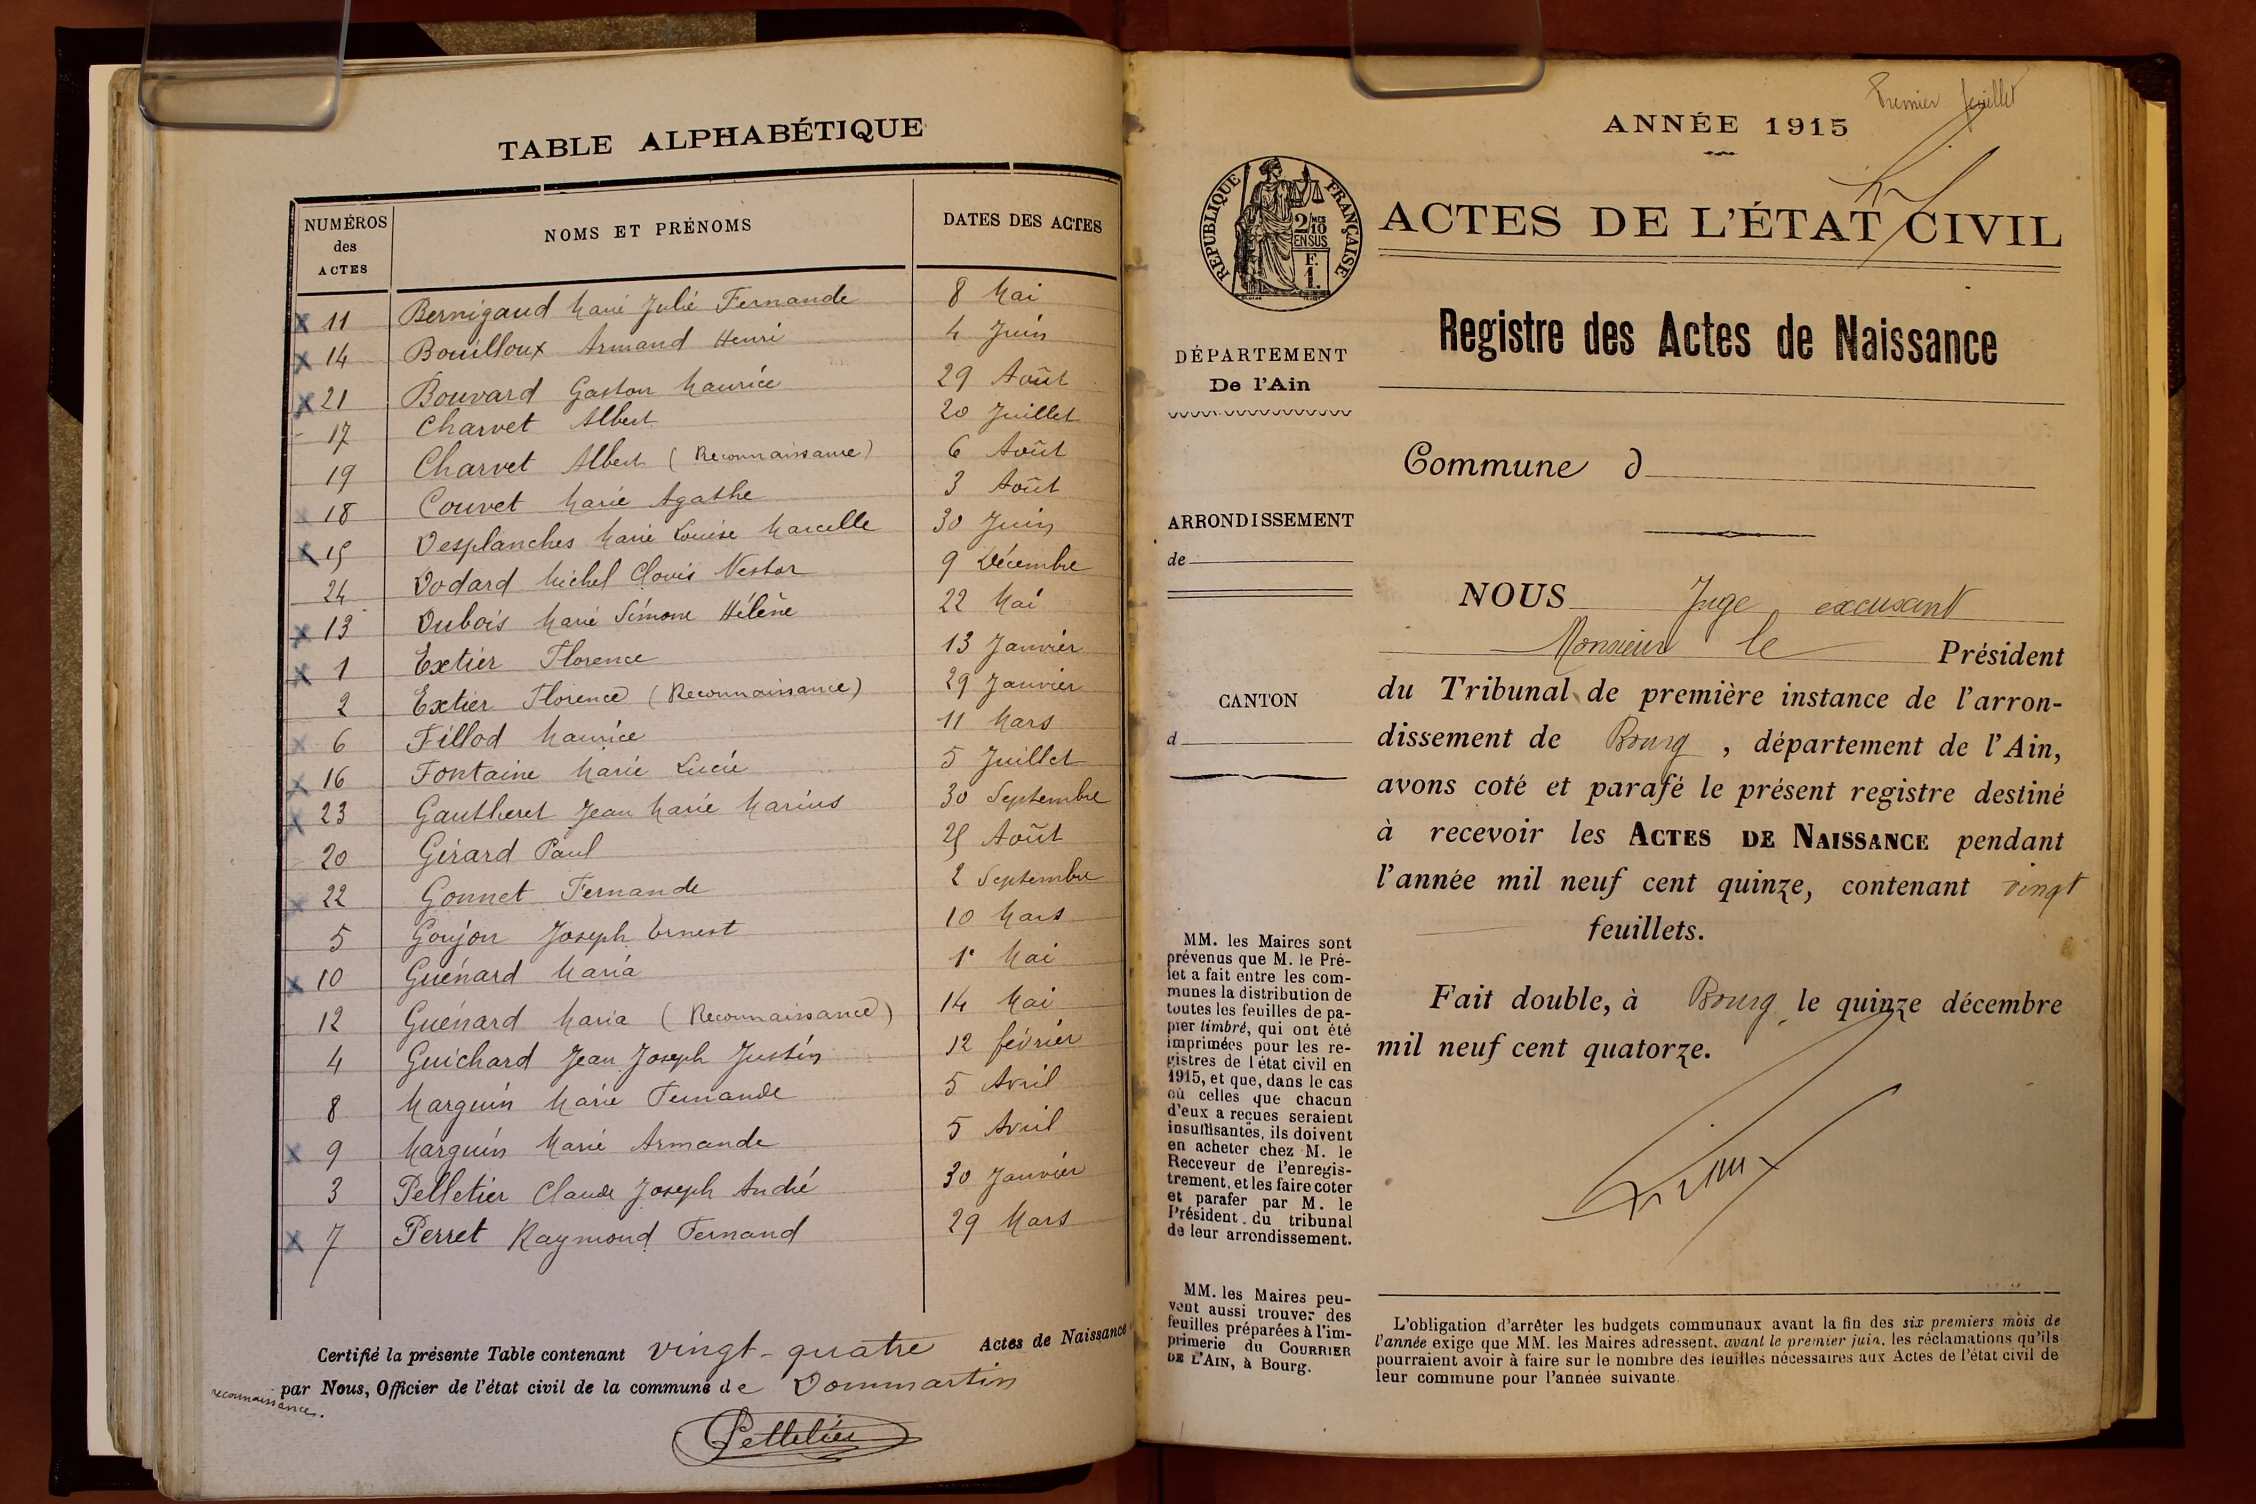 TABLE ALPHABÉTIQUE
NUMÉROS des ACTES NOMS ET PRÉNOMS DATES DES ACTES
11 Bernigaud Marie Julie Fernande 8 Mai
14 Bouilloux Armand Henri 4 Juin
21 Bouvard Gaston Maurice 29 Août
17 Charvet Albert 20 Juillet
19 Charvet Albert (Reconnaissance) 6 Août
18 Couvet Marie Agathe 3 Août
15 Desplanches Marie Louise Marcelle 30 Juin
24 Dodard Michel Clovis Nestor 9 Décembre
13 Dubois Marie Simone Hélène 22 Mai
1 Extier Florence 13 Janvier
2 Extier Florence (Reconnaissance) 29 Janvier
6 Fillod Maurice 11 Mars
16 Fontaine Marie Lucie 5 Juillet
23 Gautheret Jean Marie Marius 30 Septembre
20 Girard Paul 25 Août
22 Gonnet Fernande 2 Septembre
5 Goujon Joseph Ernest 10 Mars
10 Guénard Maria 1e Mai
12 Guénard Maria (Reconnaissance) 14 Mai
4 Guichard Jean Joseph Justin 12 février
8 Marguin Marie Fernande 5 Avril
9 Marguin Marie Armande 5 Avril
3 Pelletier Claude Joseph André 30 Janvier
7 Perret Raymond Fernand 29 Mars
Certifié la présente Table contenant vingt-quatre Actes de Naissance
reconnaissances.
par Nous, Officier de l'état civil de la commune de Dommartin
Pelletier
Premier feuillet
ANNÉE 1915
RÉPUBLIQUE FRANÇAISE
2/10 MES
EN SUS
F.
1.
ACTES DE L'ÉTAT CIVIL
Registre des Actes de Naissance
DÉPARTEMENT
De l'Ain
Commune d
ARRONDISSEMENT
de
CANTON
d
NOUS Juge excusant
Monsieur le Président
du Tribunal de première instance de l'arron-
dissement de Bourg, département de l'Ain,
avons coté et parafé le présent registre destiné
à recevoir les ACTES DE NAISSANCE pendant
l'année mil neuf cent quinze, contenant vingt
feuillets.
Fait double, à Bourg, le quinze décembre
mil neuf cent quatorze.
MM. les Maires sont
prévenus que M. le Pré-
fet a fait entre les com-
munes la distribution de
toutes les feuilles de pa-
pier timbré, qui ont été
imprimées pour les re-
gistres de l'état civil en
1915, et que, dans le cas
où celles que chacun
d'eux a reçues seraient
insuffisantes, ils doivent
en acheter chez M. le
Receveur de l'enregis-
trement, et les faire coter
et parafer par M. le
Président du tribunal
de leur arrondissement.
MM. les Maires peu-
vent aussi trouver des
feuilles préparées à l'im-
primerie du COURRIER
DE L'AIN, à Bourg.
L'obligation d'arrêter les budgets communaux avant la fin des six premiers mois de
l'année exige que MM. les Maires adressent, avant le premier juin, les réclamations qu'ils
pourraient avoir à faire sur le nombre des feuilles nécessaires aux Actes de l'état civil de
leur commune pour l'année suivante.